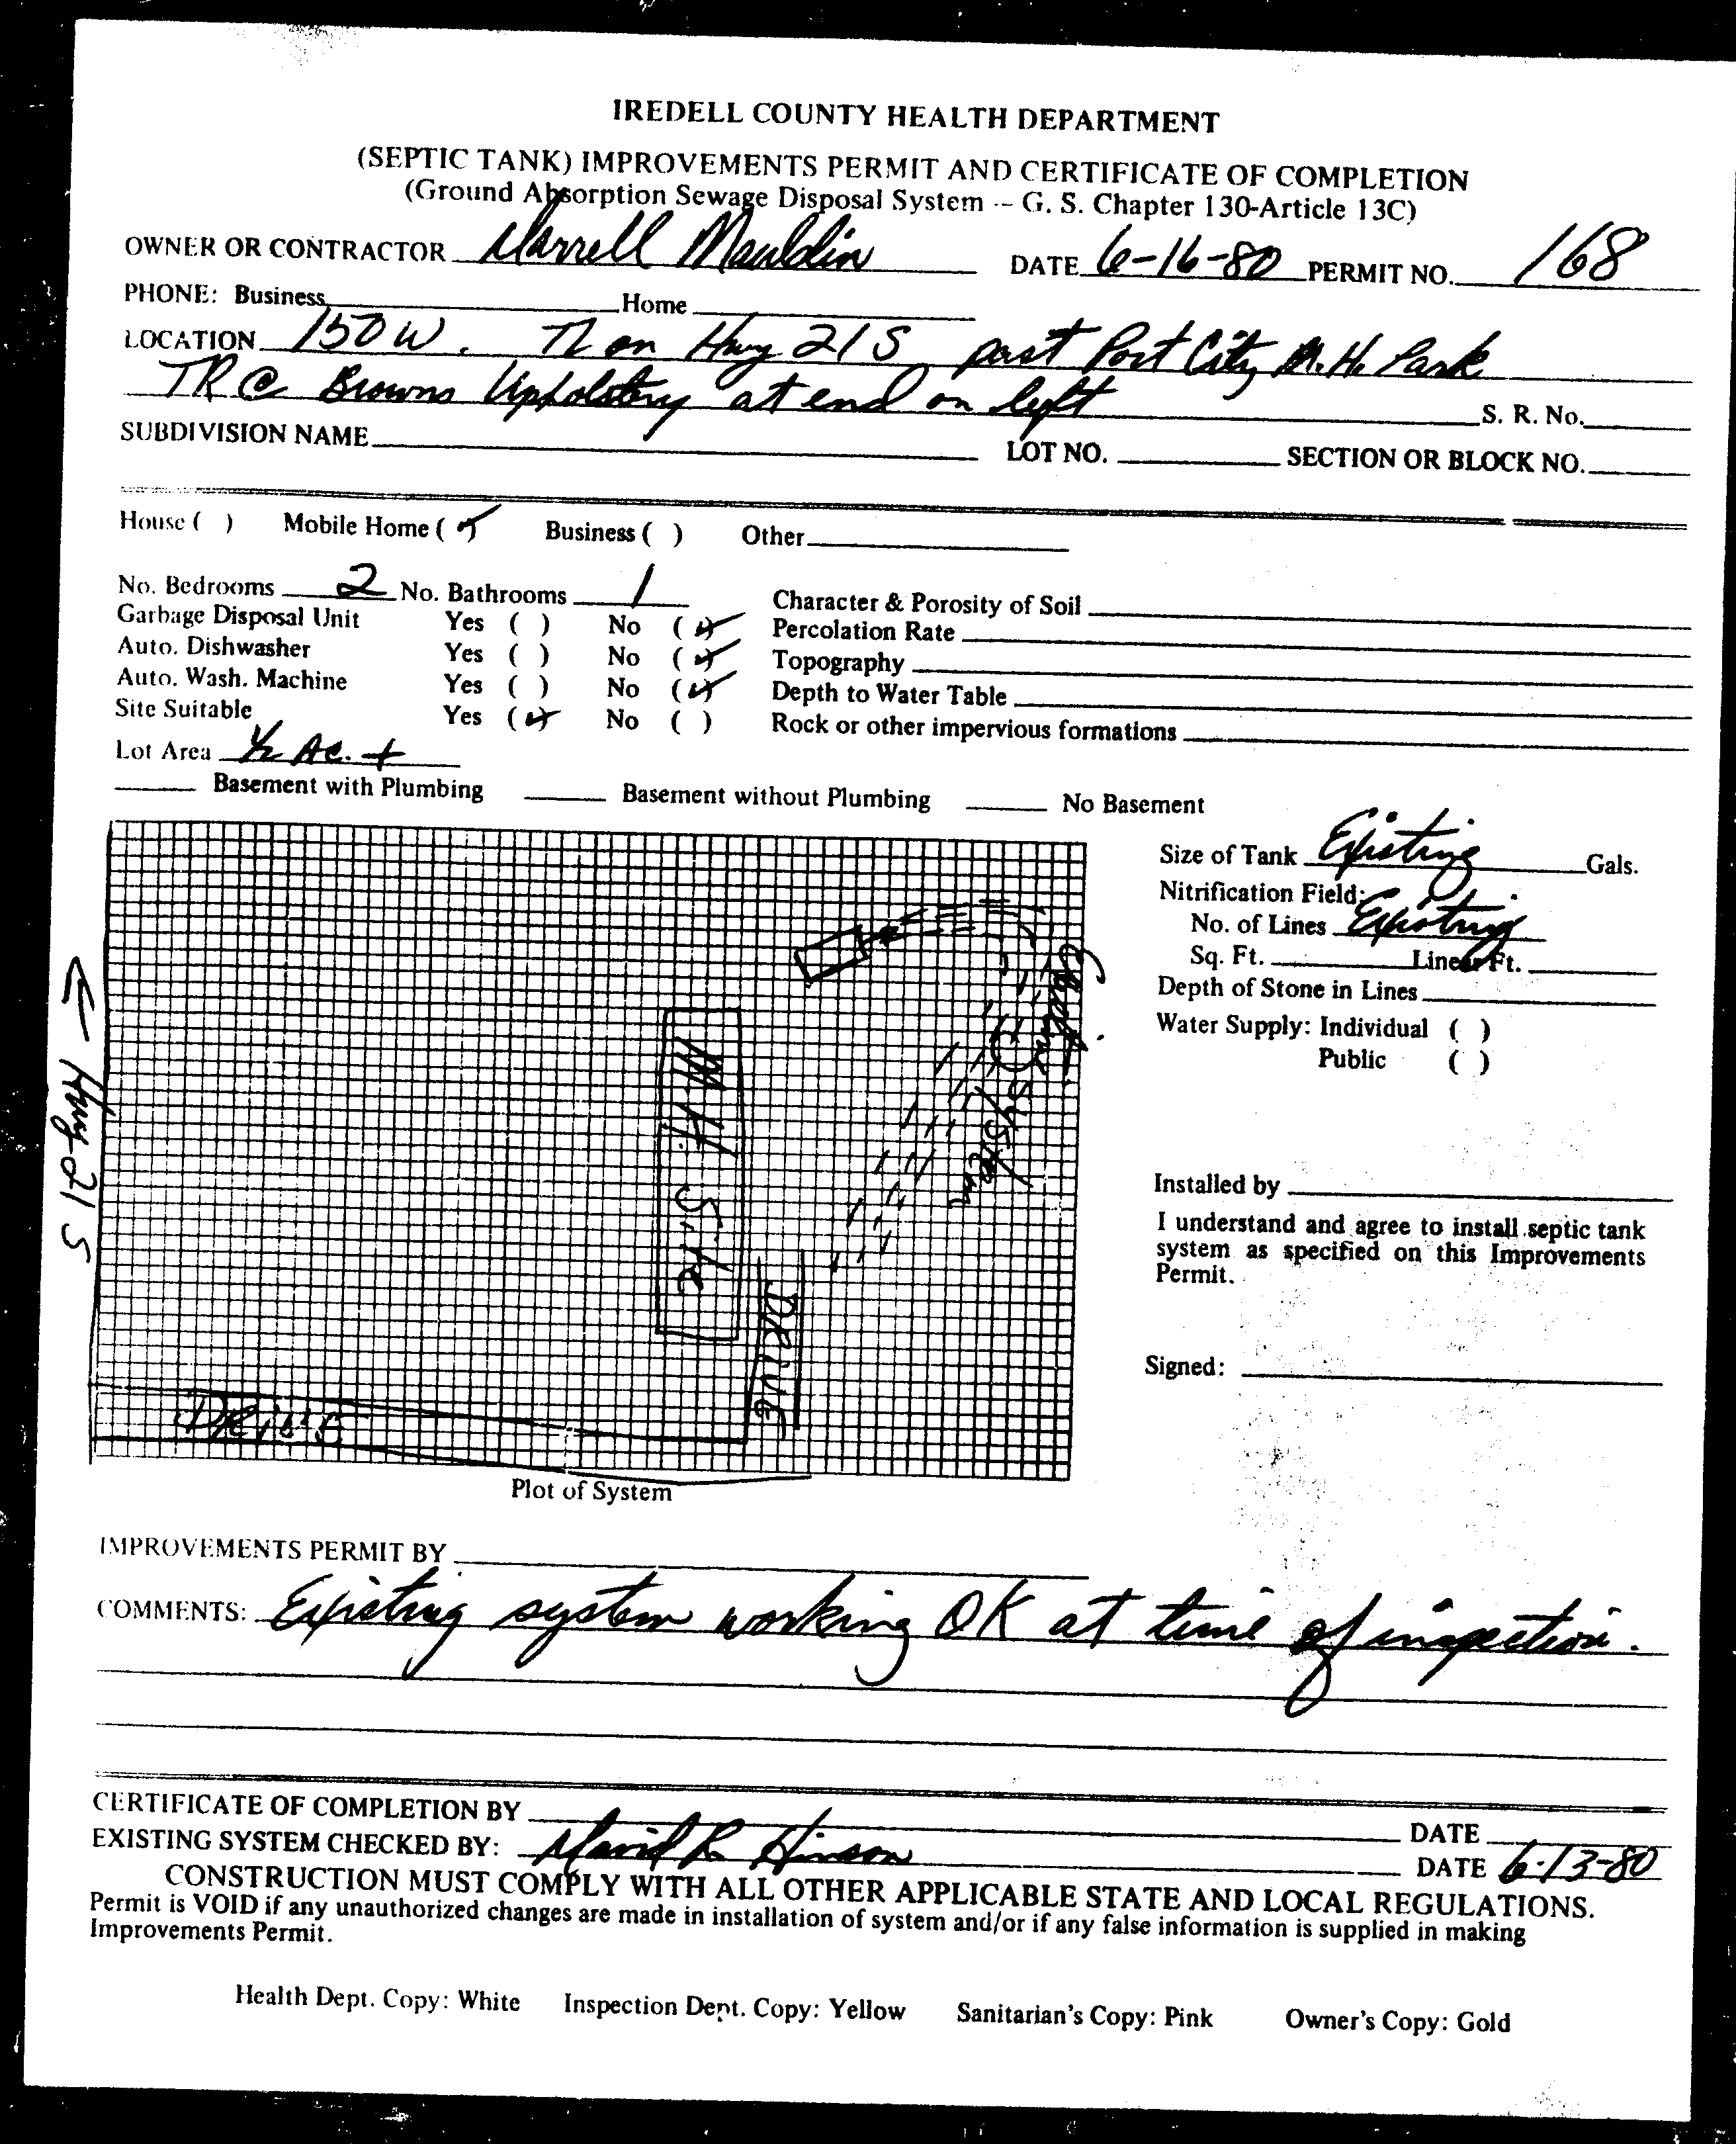 IREDELL COUNTY HEALTH DEPARTMENT
(SEPTIC TANK) IMPROVEMENTS PERMIT AND CERTIFICATE OF COMPLETION
(Ground Absorption Sewage Disposal System -- G. S. Chapter 130-Article 13C)
OWNER OR CONTRACTOR Darrell Mauldin DATE 6-16-80 PERMIT NO. 168
PHONE: Business Home
LOCATION 150 W. TL on Hwy 21 S past Port City M.H. Park
TR @ Browns Upholstery at end on left S. R. No.
SUBDIVISION NAME LOT NO. SECTION OR BLOCK NO.
House ( ) Mobile Home (✓) Business ( ) Other
No. Bedrooms 2 No. Bathrooms 1 Character & Porosity of Soil
Garbage Disposal Unit Yes ( ) No (✓) Percolation Rate
Auto. Dishwasher Yes ( ) No (✓) Topography
Auto. Wash. Machine Yes ( ) No (✓) Depth to Water Table
Site Suitable Yes (✓) No ( ) Rock or other impervious formations
Lot Area ½ Ac. +
Basement with Plumbing Basement without Plumbing No Basement
Size of Tank Existing Gals.
Nitrification Field:
No. of Lines Existing
Sq. Ft. Linear Ft.
Depth of Stone in Lines
Water Supply: Individual ( )
Public ( )
Installed by
I understand and agree to install septic tank
system as specified on this Improvements
Permit.
Signed:
← Hwy 21 S
MH Site
System
DRIVE
DRIVE
Plot of System
IMPROVEMENTS PERMIT BY
COMMENTS: Existing system working OK at time of inspection.
CERTIFICATE OF COMPLETION BY DATE
EXISTING SYSTEM CHECKED BY: David R Hinson DATE 6-13-80
CONSTRUCTION MUST COMPLY WITH ALL OTHER APPLICABLE STATE AND LOCAL REGULATIONS.
Permit is VOID if any unauthorized changes are made in installation of system and/or if any false information is supplied in making
Improvements Permit.
Health Dept. Copy: White Inspection Dept. Copy: Yellow Sanitarian's Copy: Pink Owner's Copy: Gold